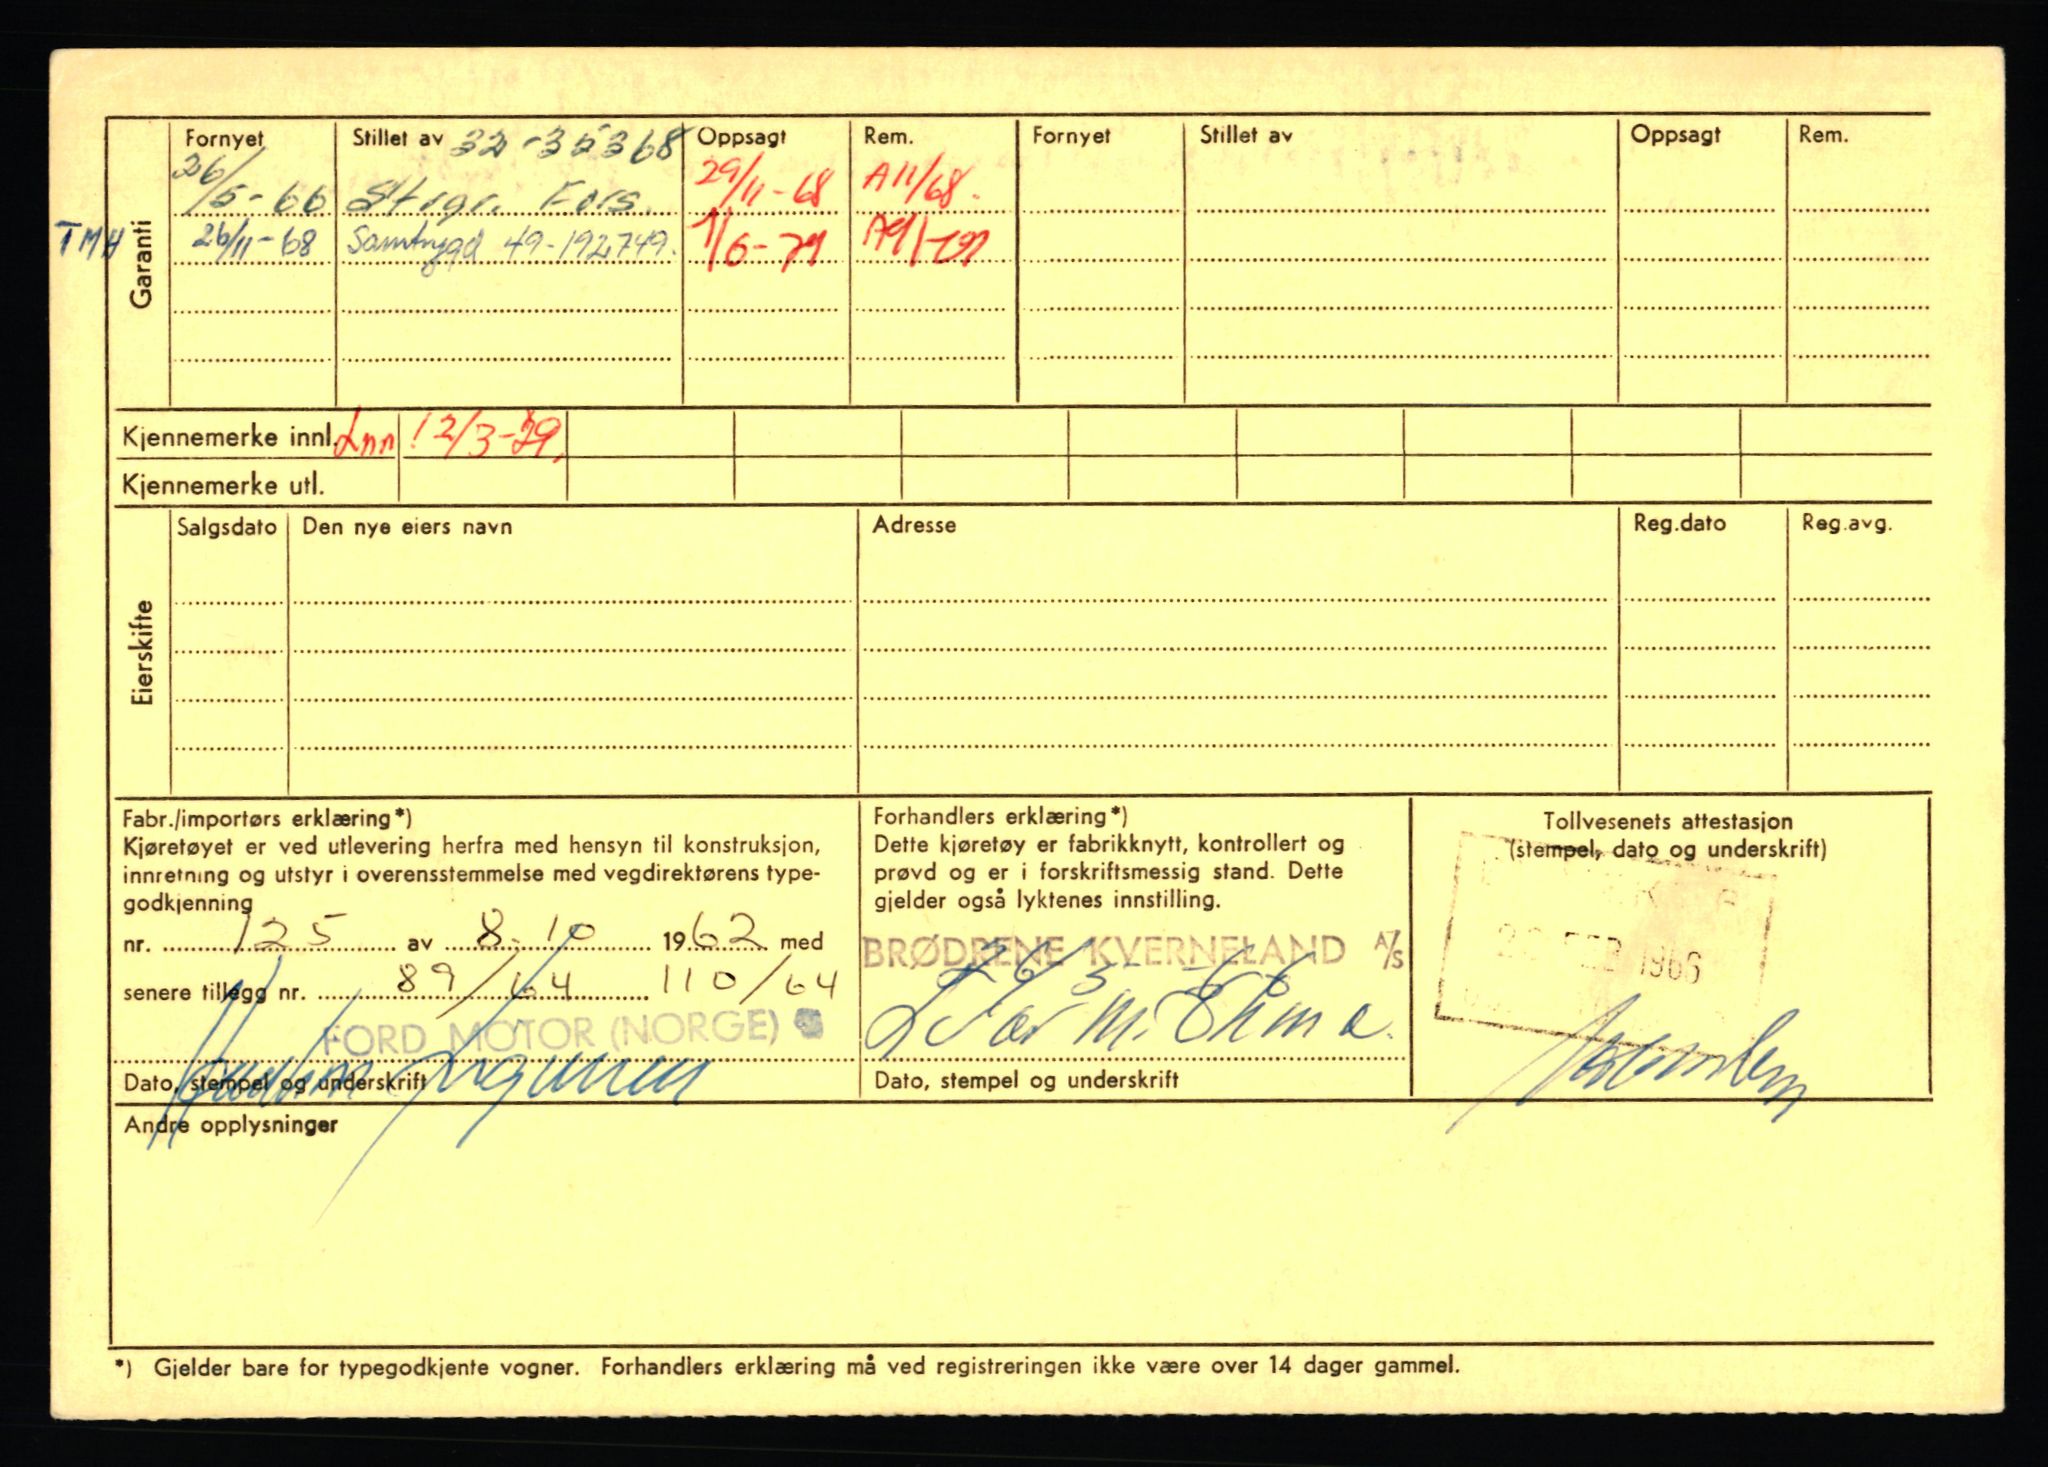 Garanti
Fornyet Stillet av 32-353 68 Oppsagt Rem. Fornyet Stillet av Oppsagt Rem.
26/5-66 Strgr. Fors. 29/11-68 A11/68.
TMH 26/11-68 Samtrygd 49-192749. 1/6-79
Kjennemerke innl. Inn 12/3-79.
Kjennemerke utl.
Eierskifte
Salgsdato Den nye eiers navn Adresse Reg.dato Reg.avg.
Fabr./importørs erklæring*)
Kjøretøyet er ved utlevering herfra med hensyn til konstruksjon,
innretning og utstyr i overensstemmelse med vegdirektørens type-
godkjenning
nr. 125 av 8.10 1962 med
senere tillegg nr. 89/64 110/64
FORD MOTOR (NORGE)
Dato, stempel og underskrift
Forhandlers erklæring*)
Dette kjøretøy er fabrikknytt, kontrollert og
prøvd og er i forskriftsmessig stand. Dette
gjelder også lyktenes innstilling.
BRØDRENE KVERNELAND A/S
26/5-66
Dato, stempel og underskrift
Tollvesenets attestasjon
(stempel, dato og underskrift)
FEB 1966
Andre opplysninger
*) Gjelder bare for typegodkjente vogner. Forhandlers erklæring må ved registreringen ikke være over 14 dager gammel.